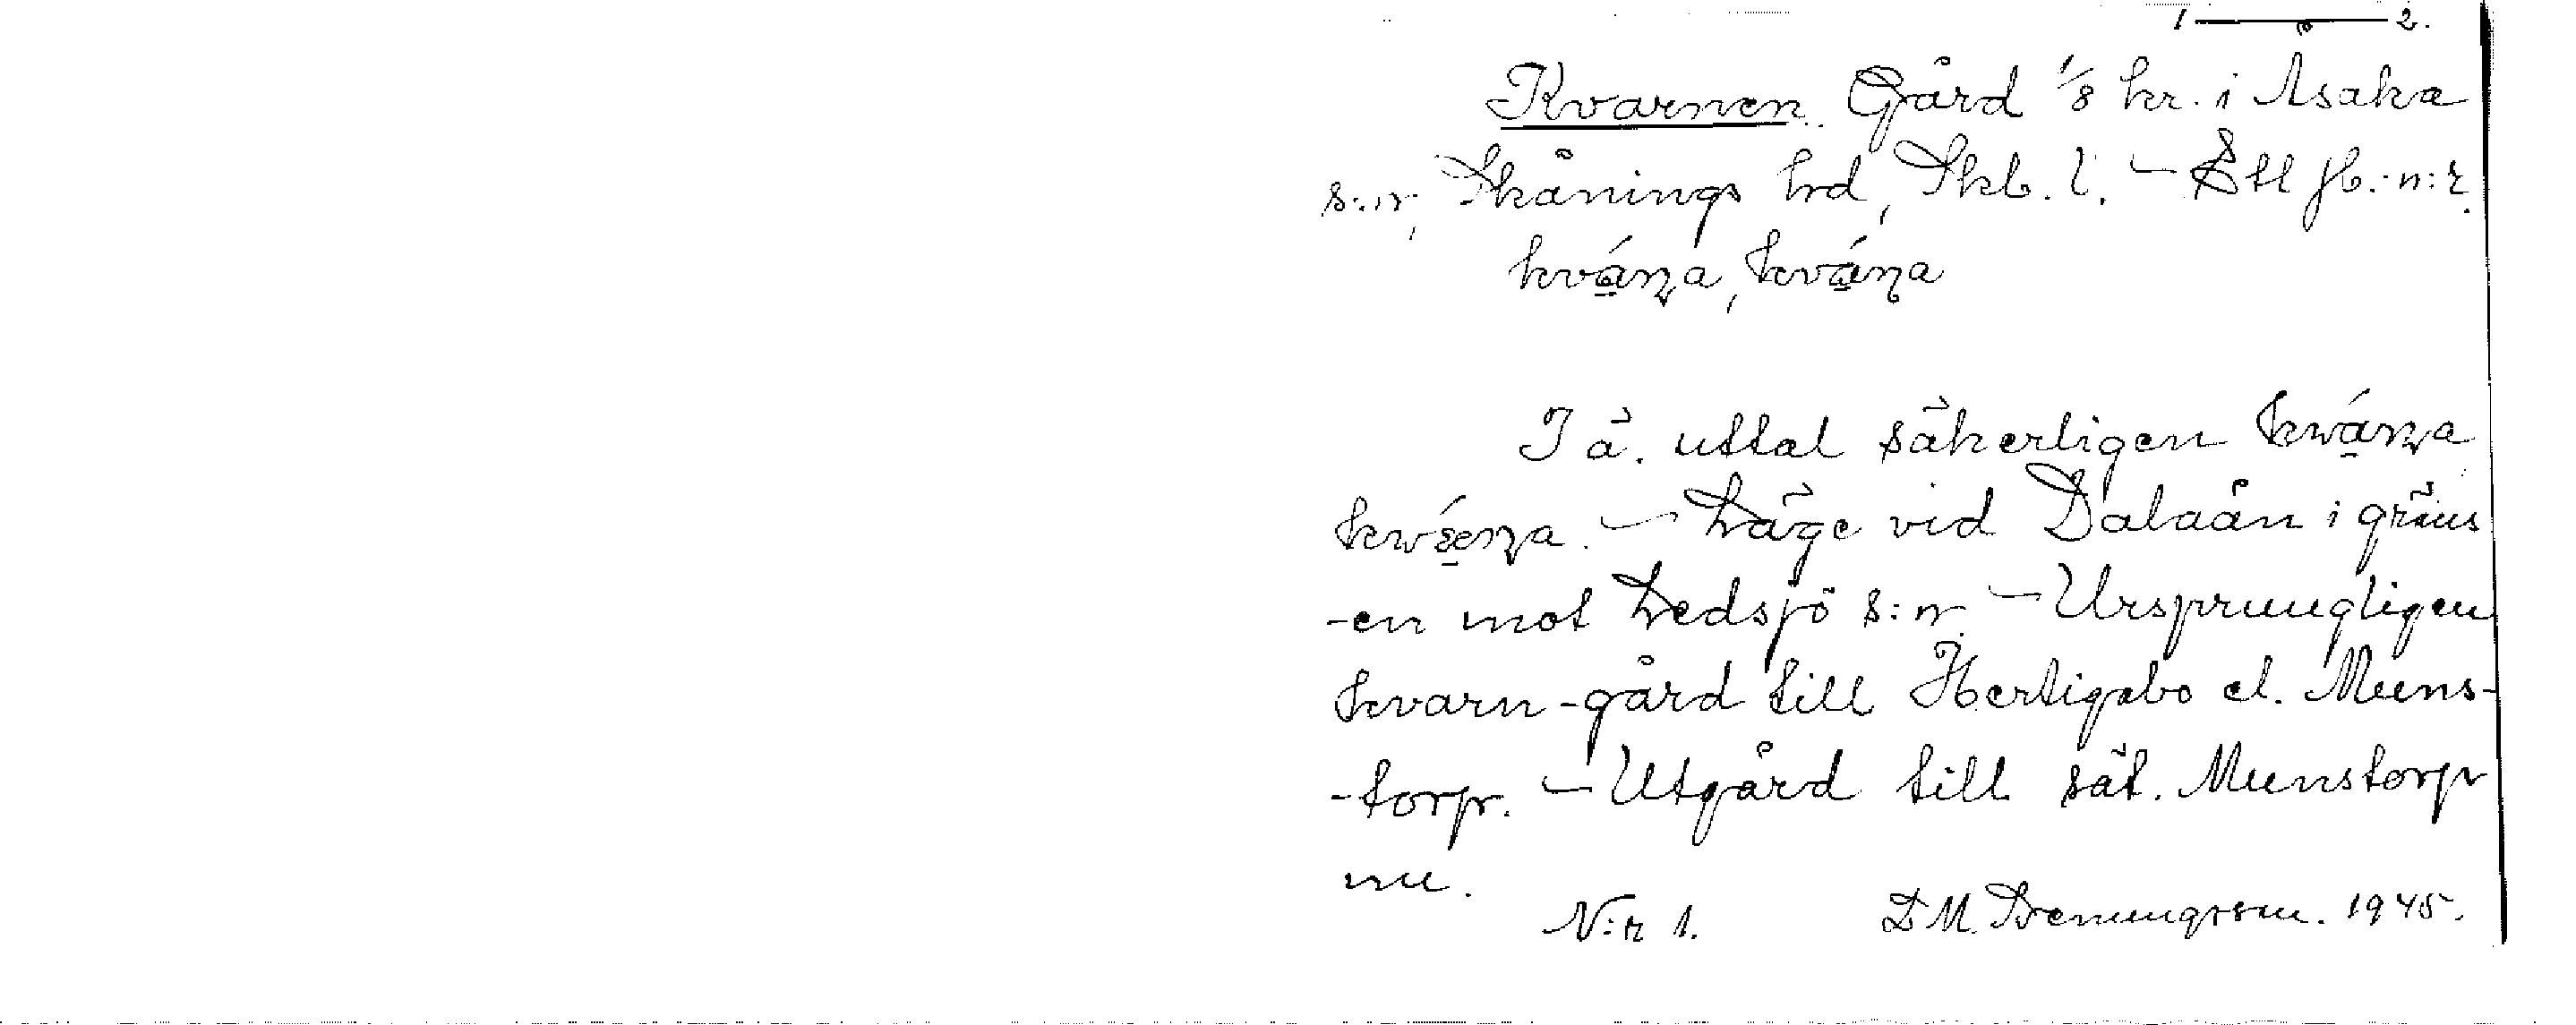 1 — 2.
Kvarnen. Gård 1/8 kr. i Åsaka
s:n, Skånings hd, Skb. l. — Ett jb.-n:r.
kváɳa, kváɳa
I ä. uttal säkerligen kwáɳa
kwǽɳa. — Läge vid Dalaån i gräns
-en mot Ledsjö s:n. — Ursprungligen
kvarn-gård till Hertigabo el. Muns-
-torp. — Utgård till sät. Munstorp
nu.
N:r 1. D M. 1945.